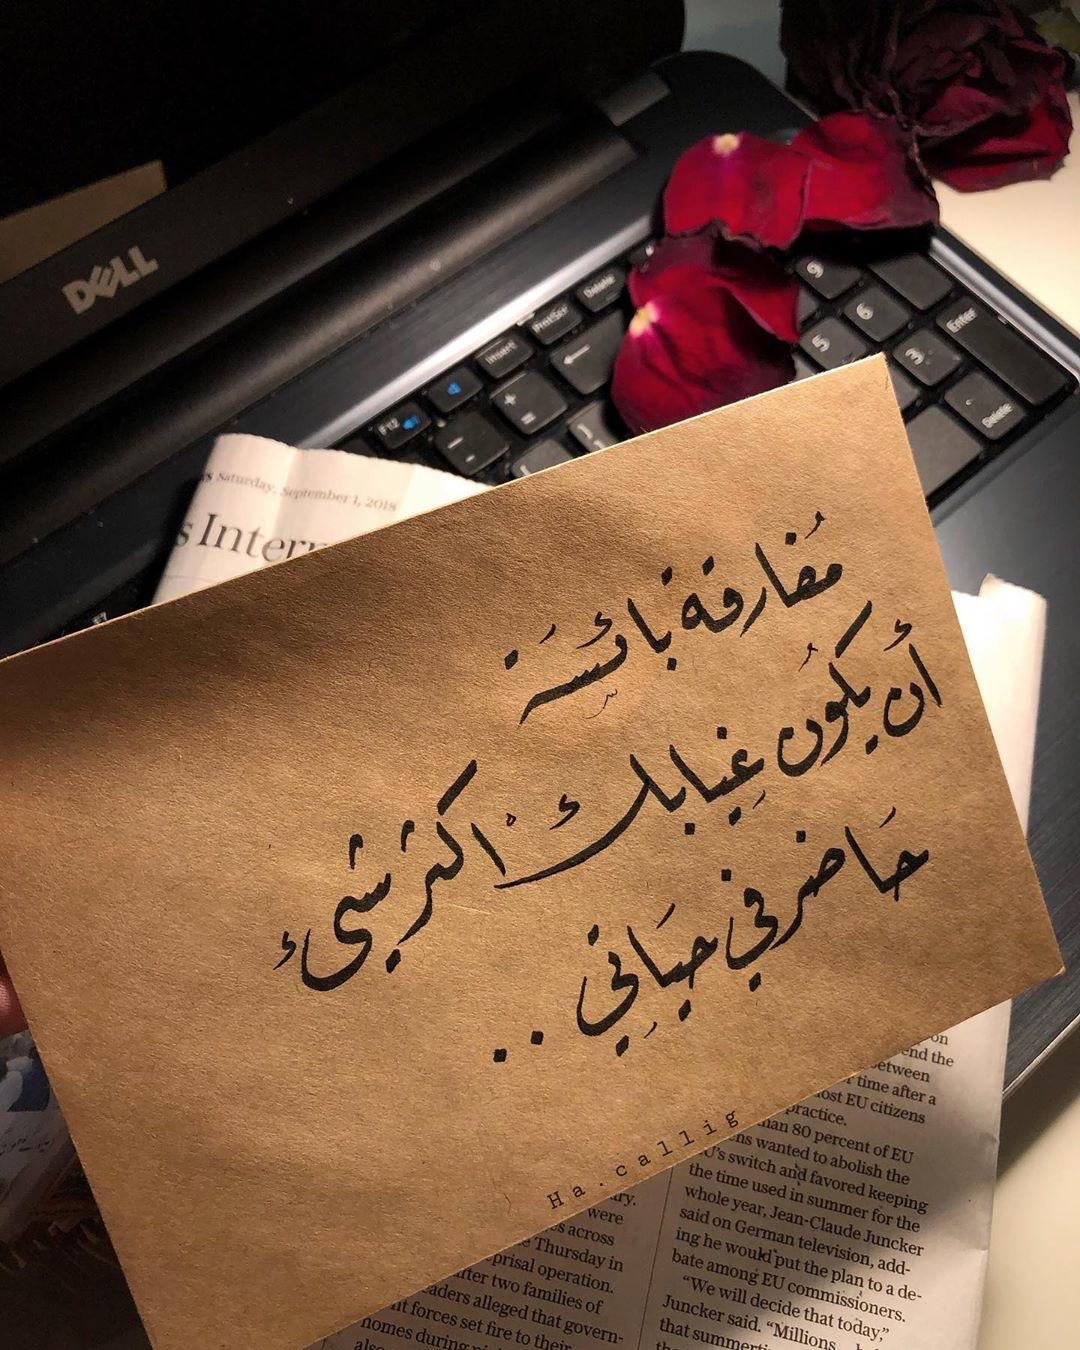 DELL
9
6
5
3
Enter
Delete
Delete
PrntScr
Insert
F12
Saturday, September 1, 2018
s Intern
مُفارقة بائسَة
أن يكُون غِيابك اكثر شيء
حَاضر في حيَاتِي ..
Ha.callig
on
end the
between
time after a
most EU citizens
practice.
than 80 percent of EU
wanted to abolish the
U's switch and favored keeping
the time used in summer for the
whole year, Jean-Claude Juncker
said on German television, add-
ing he would put the plan to a de-
bate among EU commissioners.
“We will decide that today,”
Juncker said. “Millions
that summertime
were
across
Thursday in
prisal operation.
after two families of
aders alleged that govern-
nt forces set fire to their
homes during
also